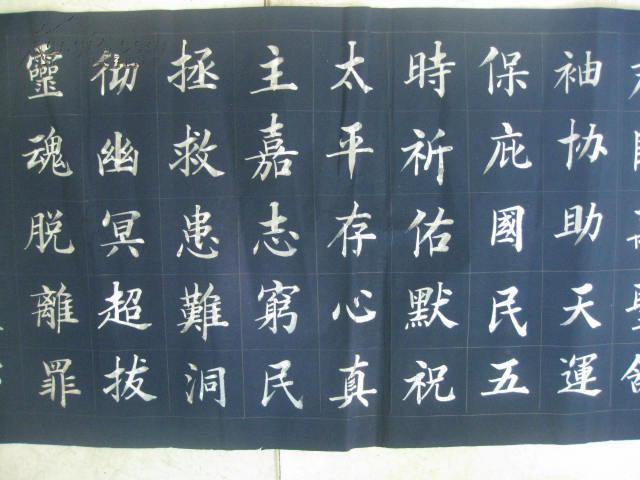 袖协助天運
保庇國民五
時祈佑默祝
太平存心真
主嘉志窮民
拯救患難洞
彻幽冥超拔
靈魂脱離罪